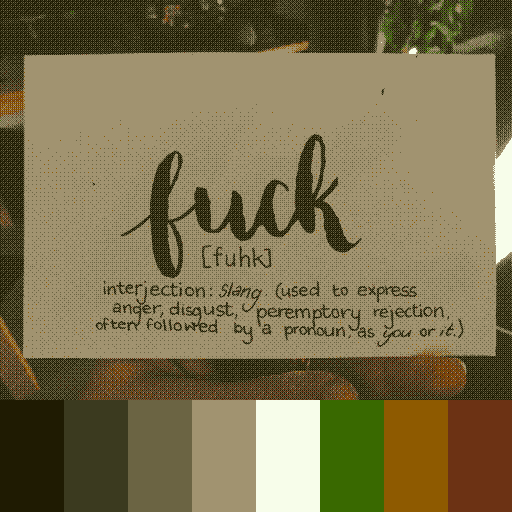 fuck
[fuhk]
interjection: slang. (used to express
anger, disgust, peremptory rejection,
often followed by a pronoun, as you or it.)